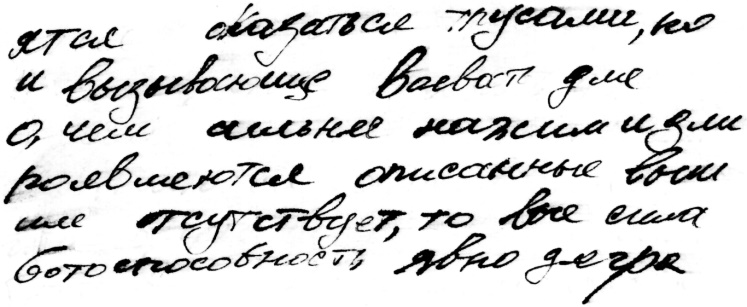 ятся оказаться трусами, но
и вызывающие воеват для
о, чем сильнее нажим и дли
роявляются описанные выш
ие отсутствует, то вие сила
ботоспособность явно дегра